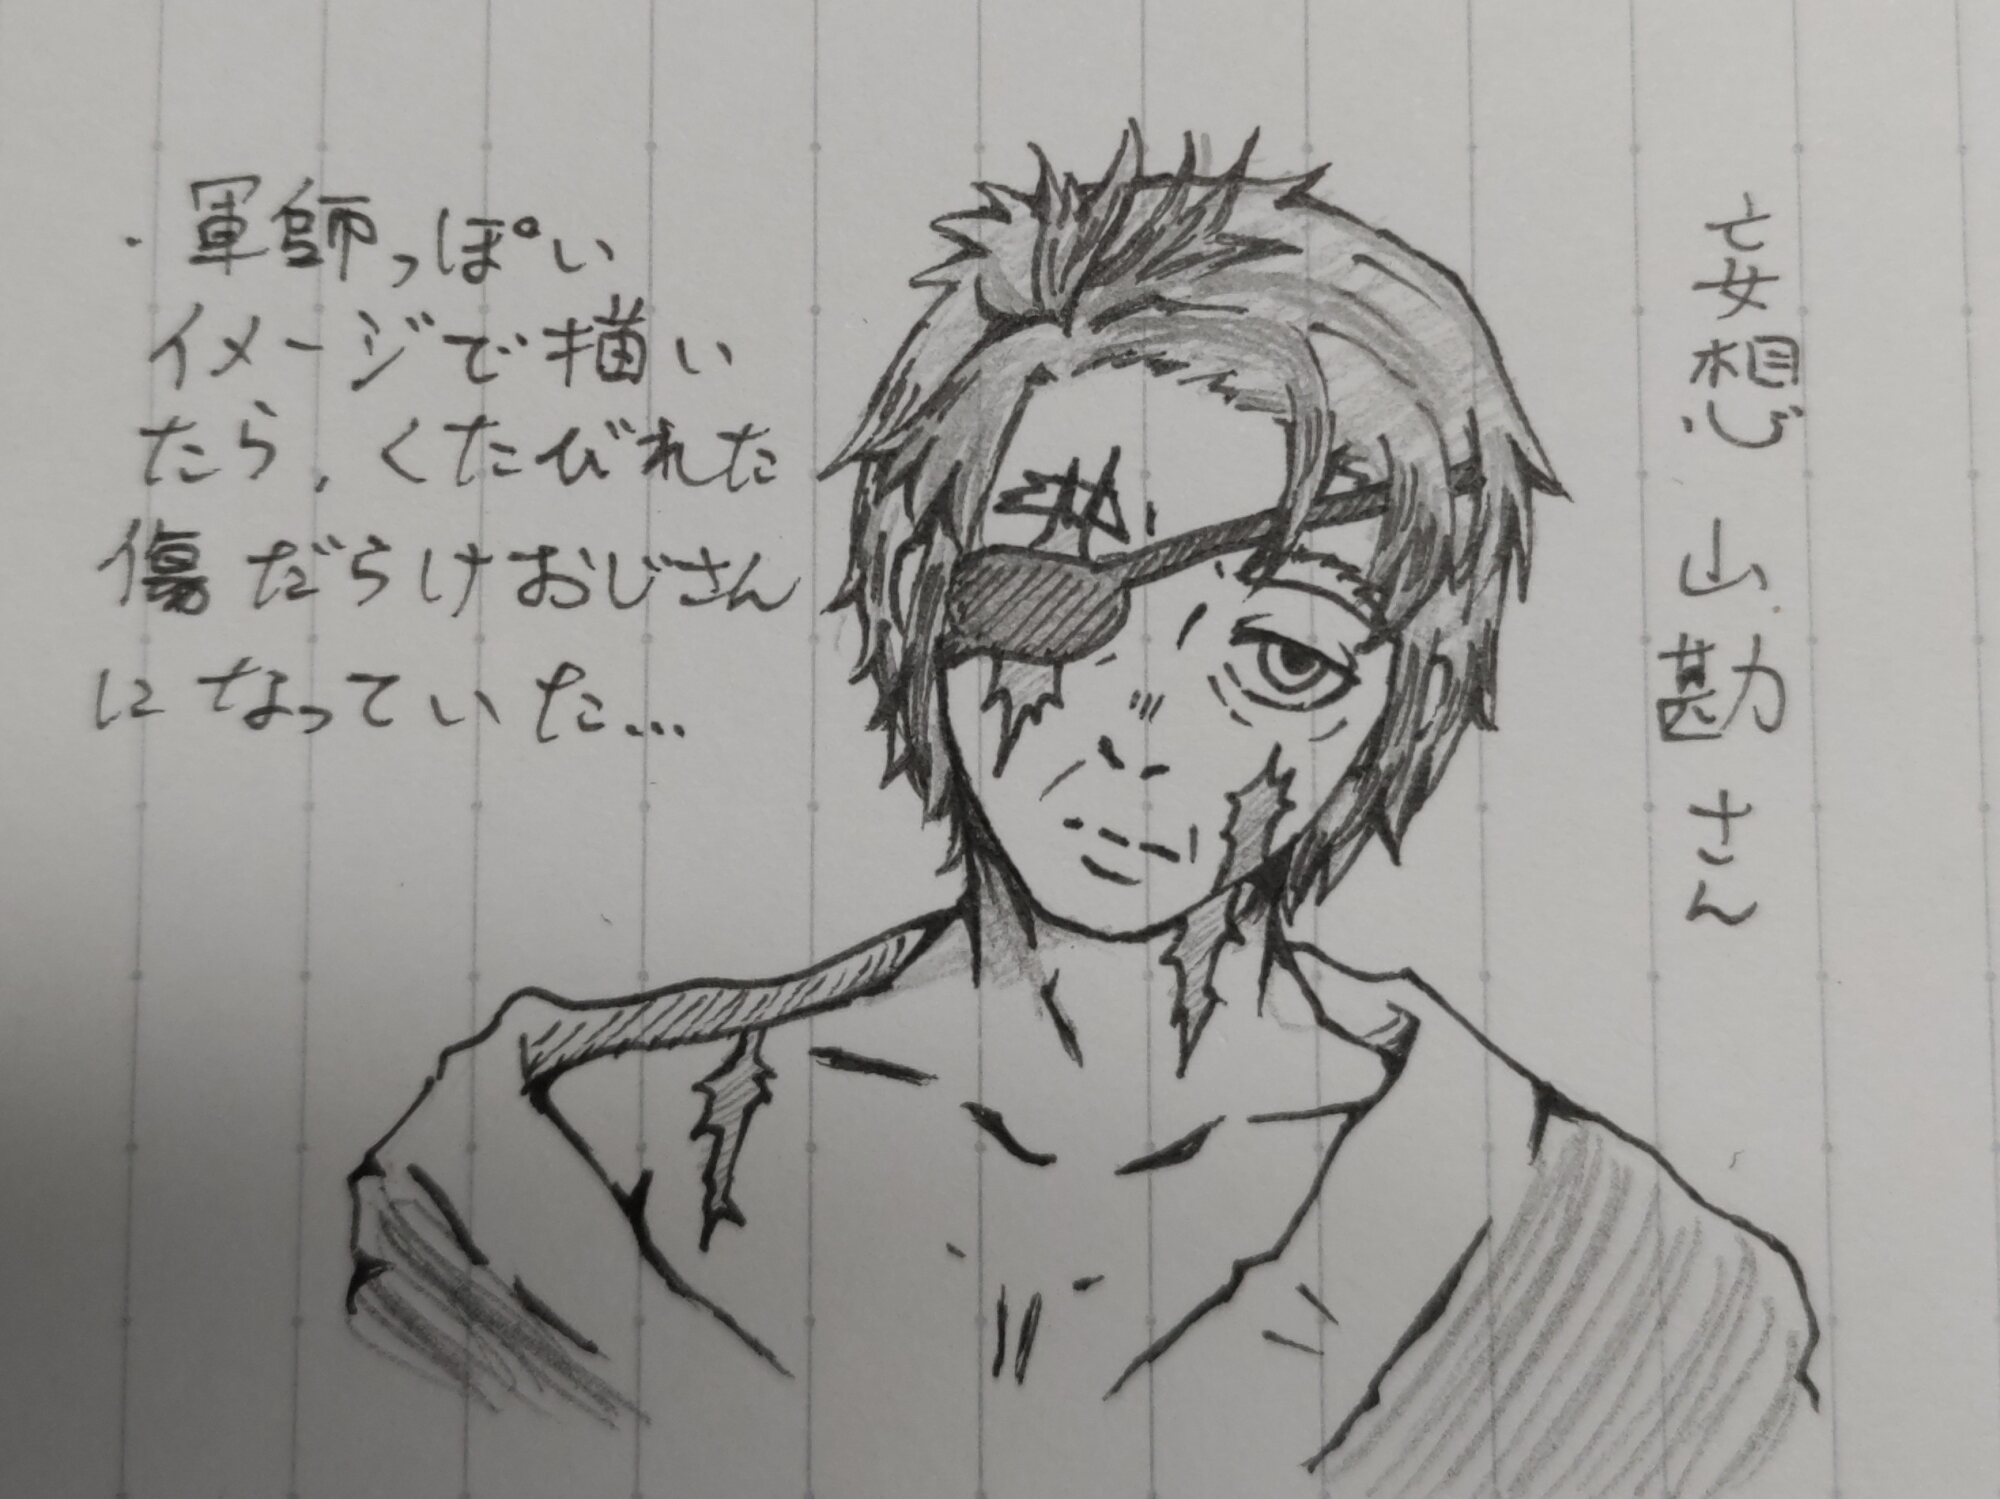 妄想 山勘さん
・軍師っぽい
イメージで描い
たら、くたびれた
傷だらけおじさん
になっていた…